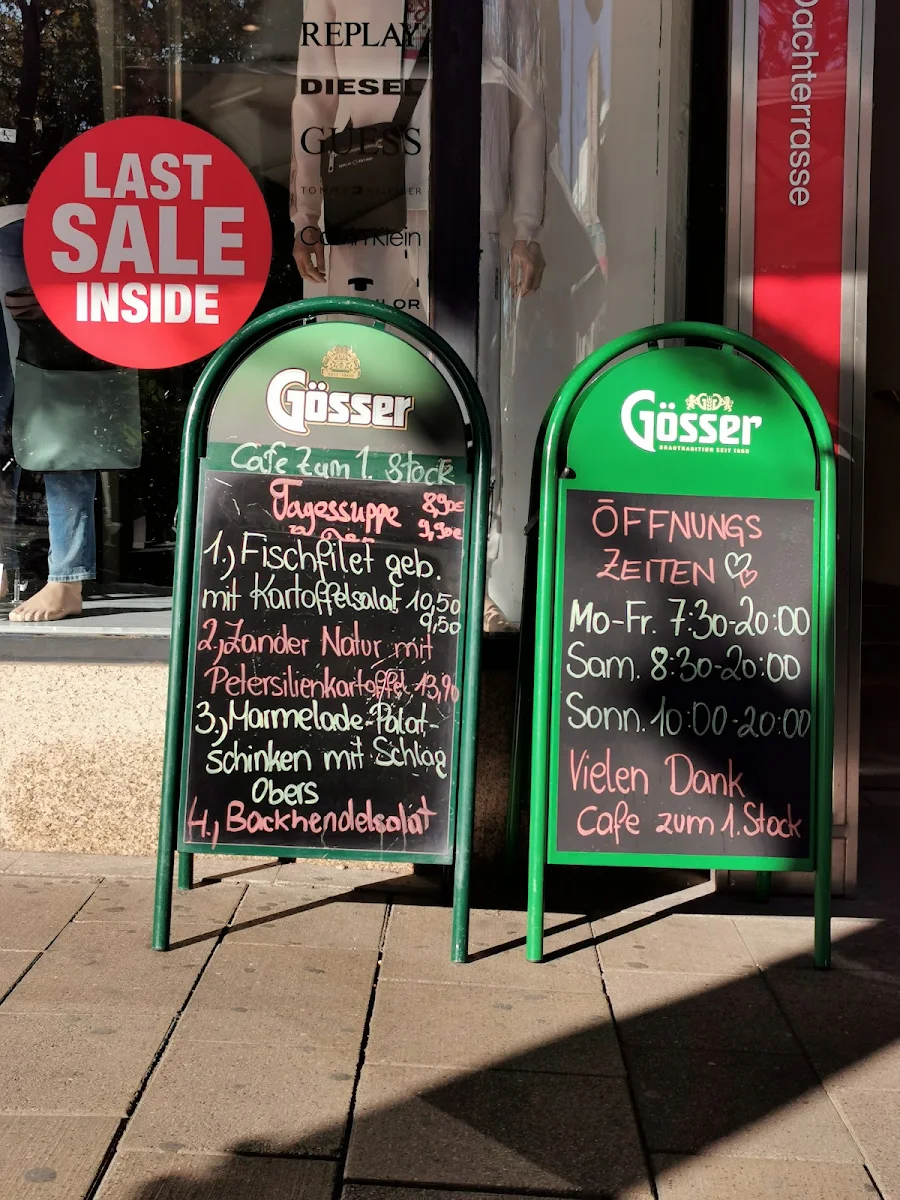 REPLAY
DIESEL
GUESS
TOMMY HILFIGER
Calvin Klein
LOR
LAST
SALE
INSIDE
Dachterrasse
Gösser
Cafe Zum 1. Stock
Tagessuppe 8,90€
9,90€
1.) Fischfilet geb.
mit Kartoffelsalat 10,50
9,50
2.) Zander Natur mit
Petersilienkartoffel 13,90
3.) Marmelade-Palat-
schinken mit Schlag
Obers
4., Backhendelsalat
Gösser
BRAUTRADITION SEIT 1860
ÖFFNUNGS
ZEITEN
Mo-Fr. 7:30-20:00
Sam. 8:30-20:00
Sonn. 10:00-20:00
Vielen Dank
Cafe zum 1. Stock